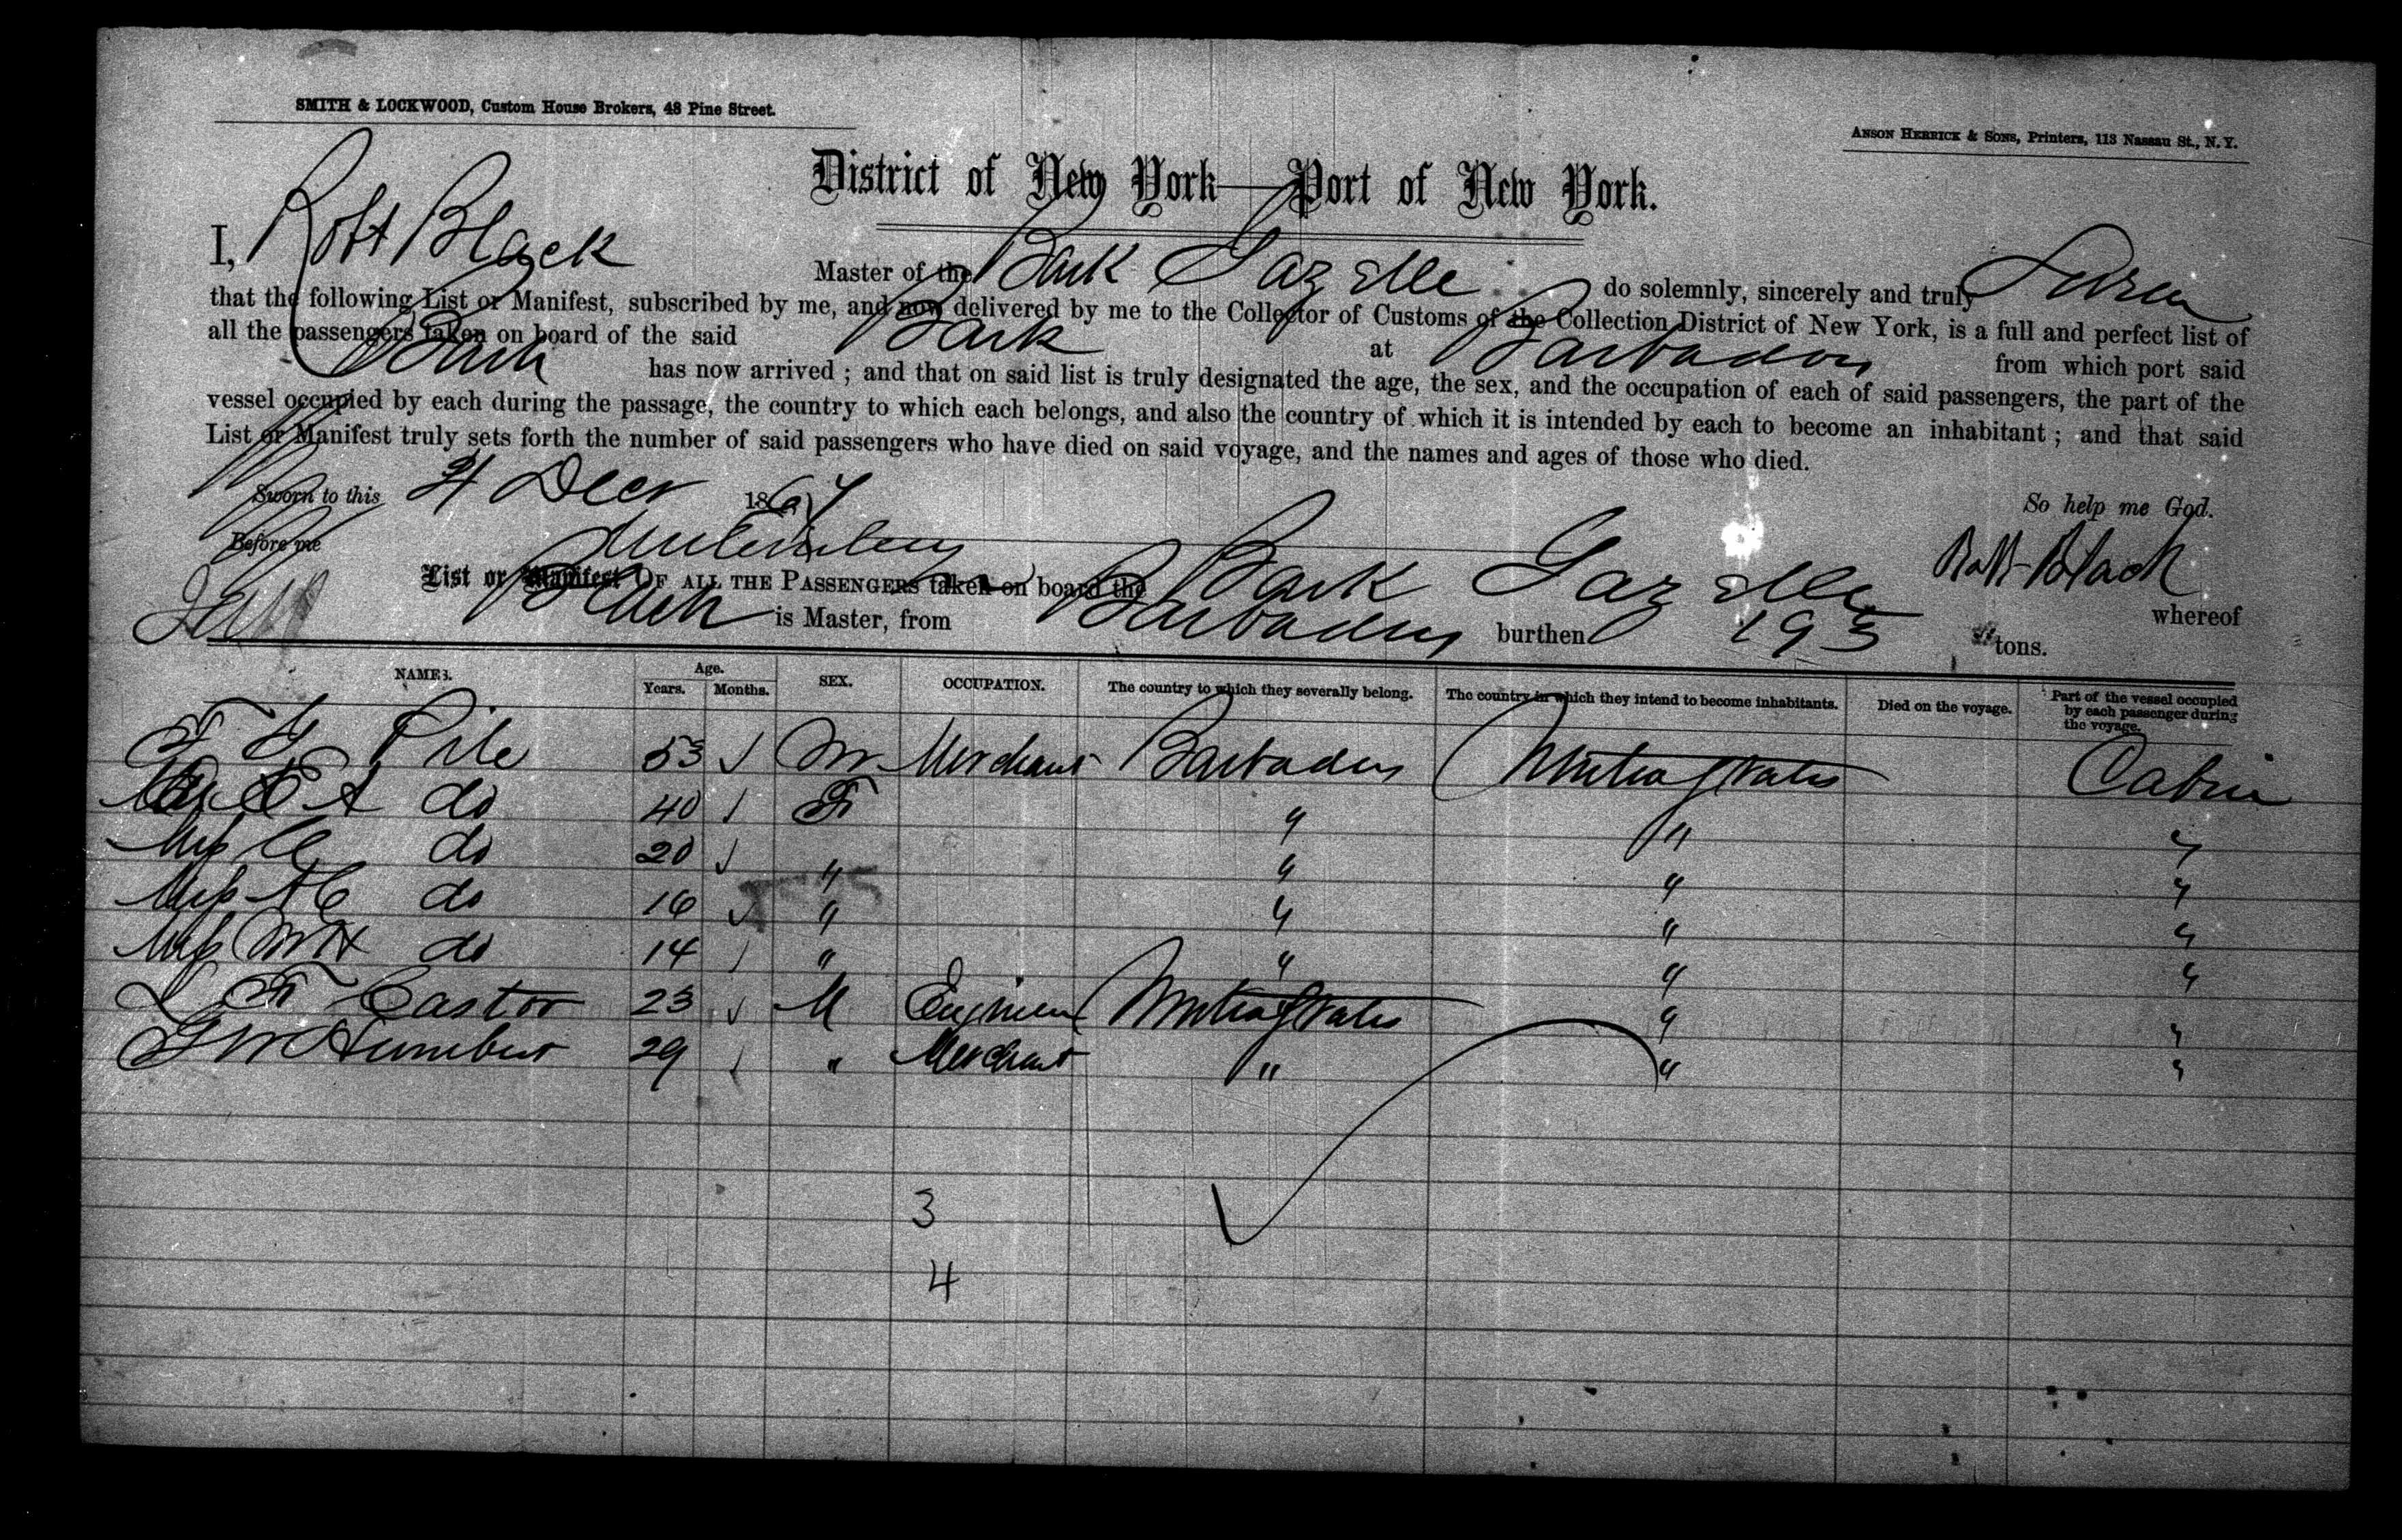 SMITH & LOCKWOOD, Custom House Brokers, 48 Pine Street.
ANSON HERRICK & SONS, Printers, 113 Nassau St., N. Y.
District of New York—Port of New York.
I, Robt Black Master of the Bark Gazelle do solemnly, sincerely and truly Swear
that the following List or Manifest, subscribed by me, and now delivered by me to the Collector of Customs of the Collection District of New York, is a full and perfect list of
all the passengers taken on board of the said Bark at Barbados from which port said
Bark has now arrived ; and that on said list is truly designated the age, the sex, and the occupation of each of said passengers, the part of the
vessel occupied by each during the passage, the country to which each belongs, and also the country of which it is intended by each to become an inhabitant ; and that said
List or Manifest truly sets forth the number of said passengers who have died on said voyage, and the names and ages of those who died.
Sworn to this Decr 186 So help me God.
Before me Robt Black
List or Manifest OF ALL THE PASSENGERS taken on board the Bark Gazelle whereof
Black is Master, from Barbados burthen 193 tons.
NAMES. Age. Years. Months. SEX. OCCUPATION. The country to which they severally belong. The country in which they intend to become inhabitants. Died on the voyage. Part of the vessel occupied by each passenger during the voyage.
T G Pile 53 M Merchant Barbados United States Cabin
A do 40 F " " "
Miss C do 20 " " " "
Miss A C do 16 " " " "
Miss M H do 14 " " " "
L F Castor 23 M Engineer United States " "
G W 29 " Merchant " " "
3
4